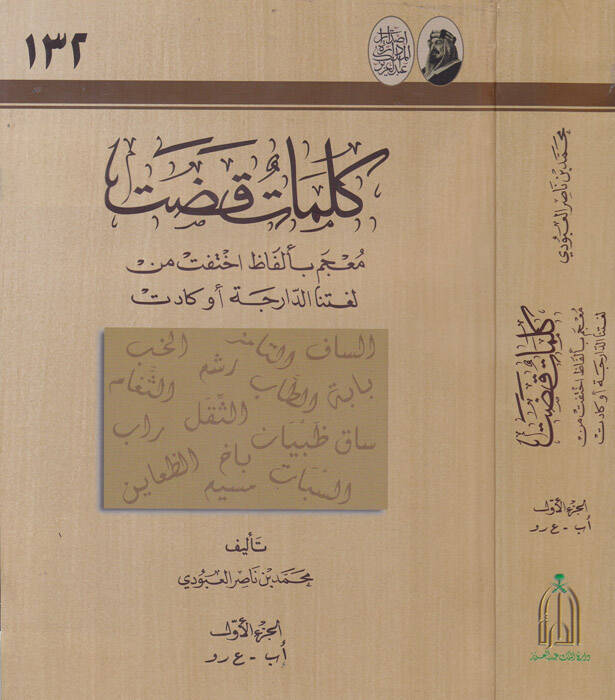 ١٣٢
إصدارات
الدارة
عبدالعزيز
كلمات قضت
مُعجم بألفاظ اختفت من
لغتنا الدّارجة أو كادت
الساف
الخب
رشم
بابة
الطَّاب
الثَّغام
الثّقل
ساق ظَبْيَان
راب
باخ
الظعاين
السَّبَات
مسيم
تأليف
محمّد بن ناصر العبّودي
الجزء الأوّل
أ ب - ع ر و
محمّد بن ناصر العبّودي
كلمات قضت
مُعجم بألفاظ اختفت من
لغتنا الدّارجة أو كادت
الجزء الأوّل
أ ب - ع ر و
الدارة
دارة الملك عبدالعزيز